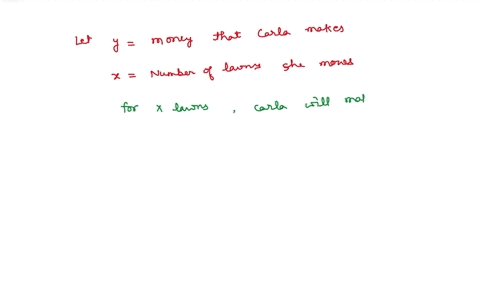 Let y = money that Carla makes
x = Number of lawns she mows
for x lawns , Carla will mak